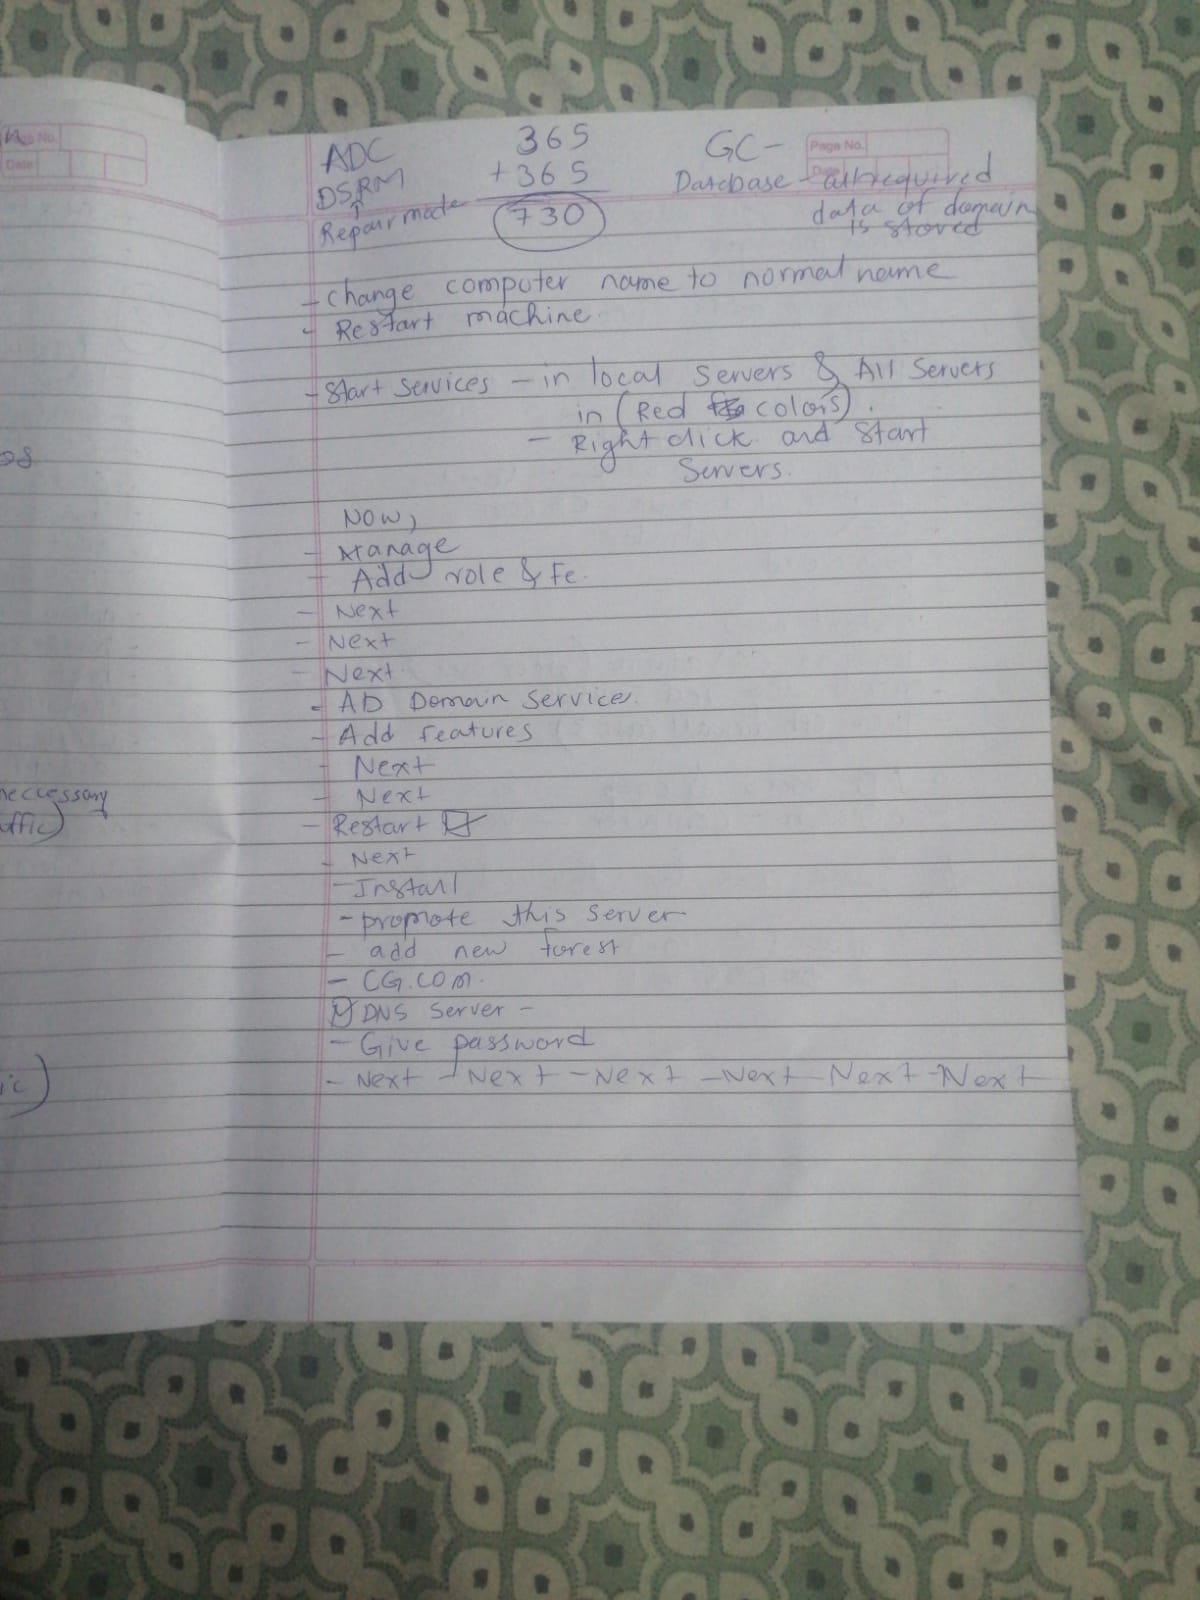 ADC
DSRM
↑
Repair mode
365
+ 365
730
GC -
Page No.
Database - all required
data of domain
is stored
- change computer name to normal name
- Restart machine.
- Start Services - in local Servers & All Servers
in (Red colors).
- Right click and start
Servers.
Now,
- Manage
- Add role & Fe.
- Next
- Next
- Next
- AD Domain Services.
- Add features
- Next
- Next
- Restart ☑
- Next
- Install
- promote this server
- add new forest
- CG.com.
☑ DNS Server -
- Give password
- Next - Next - Next - Next - Next - Next
Page No.
Date
os
neccessary
ffic)
ic)